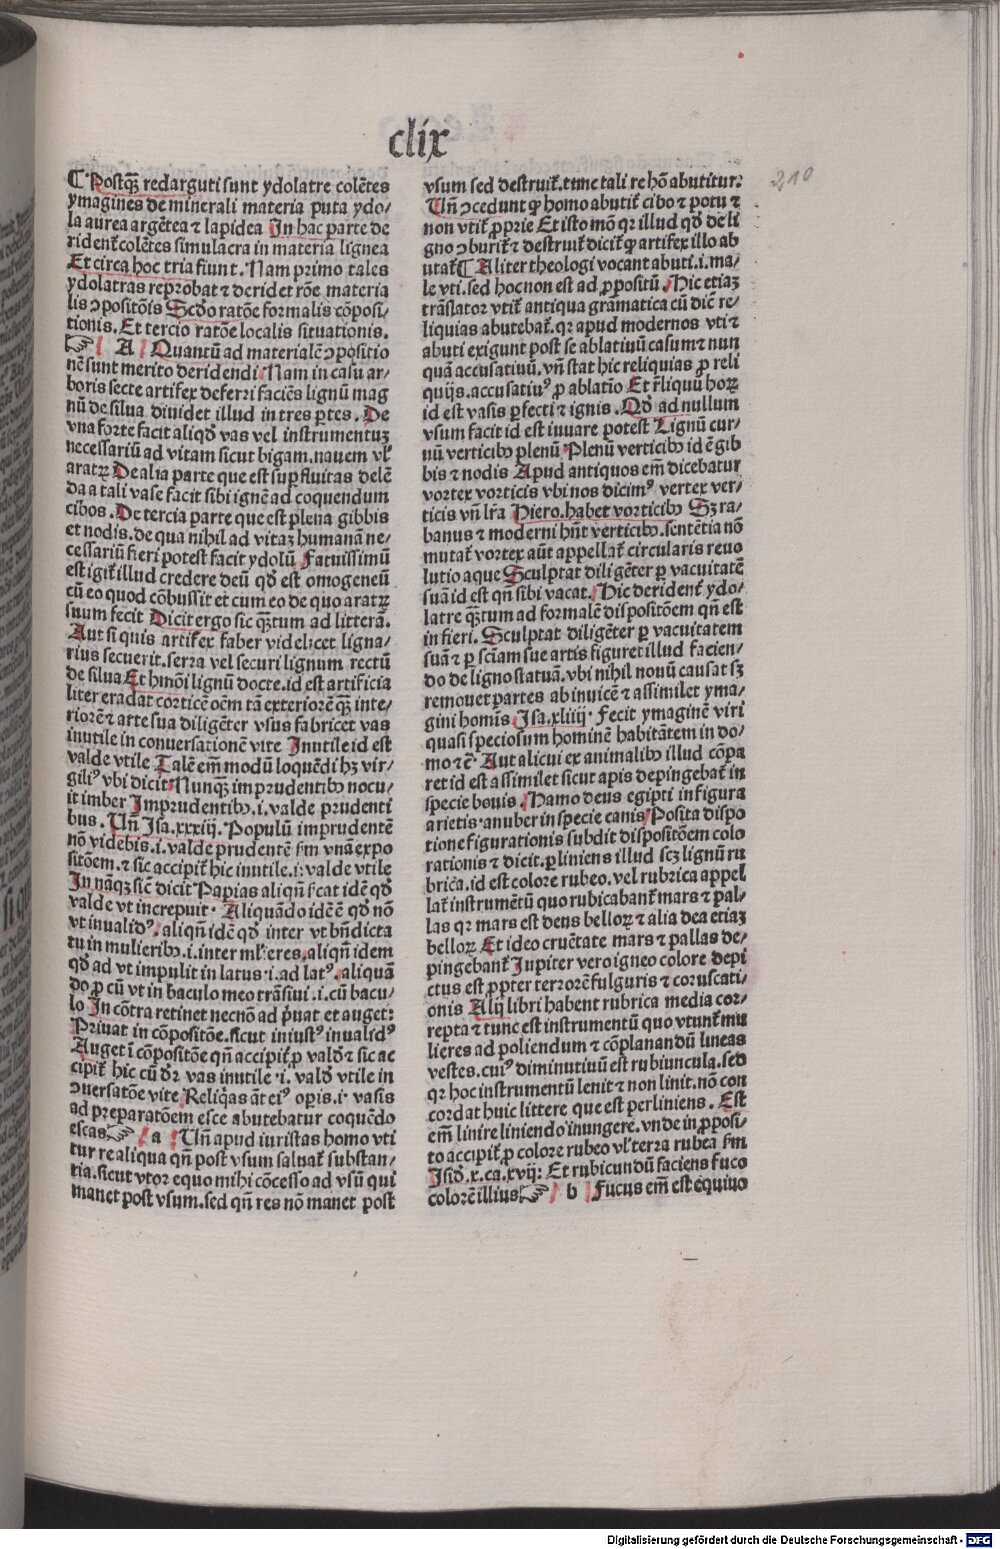 clix
210
¶ Postq̃ȝ redarguti sunt ydolatre colẽtes
ymagines de minerali materia puta ydo⸗
la aurea argẽtea ⁊ lapidea In hac parte de
rident᷑ colẽtes simulacra in materia lignea
Et circa hoc tria fiunt. Nam primo tales
ydolatras reprobat ⁊ deridet rõe materia
lis ↄpositõis Scd̃o ratõe formalis cõposi⸗
tionis. Et tercio ratõe localis situationis.
☞ A Quantũ ad materialẽ ↄpositio
nẽ sunt merito deridendi Nam in casu ar⸗
boris secte artifex deferri faciẽs lignũ mag
nũ de silua diuidet illud in tres ꝑtes. De
vna forte facit aliqd̃ vas vel instrumentuȝ
necessariũ ad vitam sicut bigam. nauem vl̾
aratꝝ De alia parte que est suꝑfluitas delẽ
da a tali vase facit sibi ignẽ ad coquendum
cibos. De tercia parte que est plena gibbis
et nodis. de qua nihil ad vitaȝ humanã ne⸗
cessariũ fieri potest facit ydolũ Fatuissimũ
est igit᷑ illud credere deũ qd̃ est omogeneũ
cũ eo quod cõbussit et cum eo de quo aratꝝ
suum fecit Dicit ergo sic q̃ȝtum ad litterã.
Aut si quis artifex faber videlicet ligna⸗
rius secuerit. serra vel securi lignum rectũ
de silua Et hmõi lignũ docte. id est artificia
liter eradat corticẽ oẽm tã exteriorẽ q̃ȝ inte⸗
riorẽ ⁊ arte sua diligẽter vsus fabricet vas
inutile in conuersationẽ vite Inutile id est
valde vtile Talẽ em̃ modũ loquẽdi hȝ vir⸗
giliꝰ vbi dicit Nunq̃ȝ imprudentibꝰ nocu⸗
it imber Imprudentibꝰ .i. valde prudenti
bus. Vñ Isa. xxxiij. Populũ imprudentẽ
nõ videbis .i. valde prudentẽ fm vnã expo
sitõem. ⁊ sic accipit᷑ hic inutile .i: valde vtile
In nãqȝ sicẽ dicit Papias aliqñ ſcat idẽ qd̃
valde vt increpuit. Aliquãdo idẽ ẽ qd̃ nõ
vt inualidꝰ. aliqñ idẽ qd̃ inter vt bñdicta
tu in mulieribꝰ .i. inter ml̾ieres. aliqñ idem
qd̃ ad vt impulit in latus .i. ad latꝰ. aliquã
do ꝓ cũ vt in baculo meo trãsiui .i. cũ bacu⸗
lo In cõtra retinet necnõ ad p̃uat et auget:
Priuat in cõpositõe. sicut iniustꝰ inualidꝰ
Auget ĩ cõpositõe qñ accipit᷑ ꝓ vald̾ ⁊ sic ac
cipit᷑ hic cũ dr̃ vas inutile .i. vald̾ vtile in
ↄuersatõe vite Reliq̃as ãt eiꝰ opis .i. vasis
ad preparatõem esce abutebatur coquẽdo
escas ☞ a Vñ apud iuristas homo vti
tur re aliqua qñ post vsum saluat᷑ substan⸗
tia. sicut vtor equo mihi cõcesso ad vsũ qui
manet post vsum. sed qñ res nõ manet post
vsum sed destruit᷑. tunc tali re hõ abutitur:
Vñ ↄcedunt ꝙ homo abutit᷑ cibo ⁊ potu ⁊
non vtit᷑ ꝓprie Et isto mõ qr illud qd̃ de li
gno ↄburit᷑ ⁊ destruit᷑ dicit᷑ ꝙ artifex illo ab
utat᷑ ¶ Aliter theologi vocant abuti .i. ma⸗
le vti. sed hoc non est ad ꝓpositũ. Hic etiaȝ
trãslator vtit᷑ antiqua gramatica cũ dic̃ re⸗
liquias abutebat᷑. qr apud modernos vti ⁊
abuti exigunt post se ablatiuũ casum ⁊ nun
quã accusatiuũ. vñ stat hic reliquias ꝓ reli
quijs. accusatiuꝰ ꝓ ablatio Et r̃liquũ hoꝝ
id est vasis ꝑfecti ⁊ ignis. Qd̃ ad nullum
vsum facit id est iuuare potest Lignũ cur⸗
uũ verticibꝰ plenũ Plenũ verticibꝰ id ẽ gib
bis ⁊ nodis Apud antiquos em̃ dicebatur
vortex vorticis vbi nos dicimꝰ vertex ver⸗
ticis vñ lr̃a Hiero. habet vorticibꝰ Sȝ ra⸗
banus ⁊ moderni hñt verticibꝰ. sentẽtia nõ
mutat᷑ vortex aũt appellat᷑ circularis reuo
lutio aque Sculptat diligẽter ꝑ vacuitatẽ
suã id est qñ sibi vacat. Hic derident᷑ ydo⸗
latre q̃ȝtum ad formalẽ dispositõem qñ est
in fieri. Sculptat diligẽter ꝑ vacuitatem
suã ⁊ ꝑ sciam sue artis figuret illud facien⸗
do de ligno statuã. vbi nihil nouũ causat sȝ
remouet partes abinuicẽ ⁊ assimilet yma⸗
gini hominis Isa. xliiij. Fecit ymaginẽ viri
quasi speciosum hominẽ habitãtem in do⸗
mo ⁊c̃ Aut alicui ex animalibꝰ illud cõpa
ret id est assimilet sicut apis depingebat᷑ in
specie bouis. Hamo deus egipti in figura
arietis. anuber in specie canis Posita dispo
tione figurationis subdit dispositõem colo
rationis ⁊ dicit. ꝑliniens illud scȝ lignũ ru
brica. id est colore rubeo. vel rubrica appel
lat᷑ instrumẽtũ quo rubicabant᷑ mars ⁊ pal⸗
las qr mars est deus belloꝝ ⁊ alia dea etiaȝ
belloꝝ Et ideo cruẽtate mars ⁊ pallas de⸗
pingebant᷑ Jupiter vero igneo colore depi
ctus est ꝓpter terrorẽ fulguris ⁊ coruscati⸗
onis Alij libri habent rubrica media cor⸗
repta ⁊ tunc est instrumentũ quo vtunt᷑ mu
lieres ad poliendum ⁊ cõplanandũ lineas
vestes. cuiꝰ diminutiuũ est rubiuncula. sed
qr hoc instrumentũ lenit ⁊ non linit. nõ con
cordat huic littere que est perliniens. Est
em̃ linire liniendo inungere. vnde in ꝓposi⸗
to accipit᷑ ꝓ colore rubeo vl̾ terra rubea fm
Isid̾. x. ca. xvij: Et rubicundũ faciens fuco
colorẽ illius ☞ b Fucus em̃ est equiuo
Digitalisierung gefördert durch die Deutsche Forschungsgemeinschaft - DFG